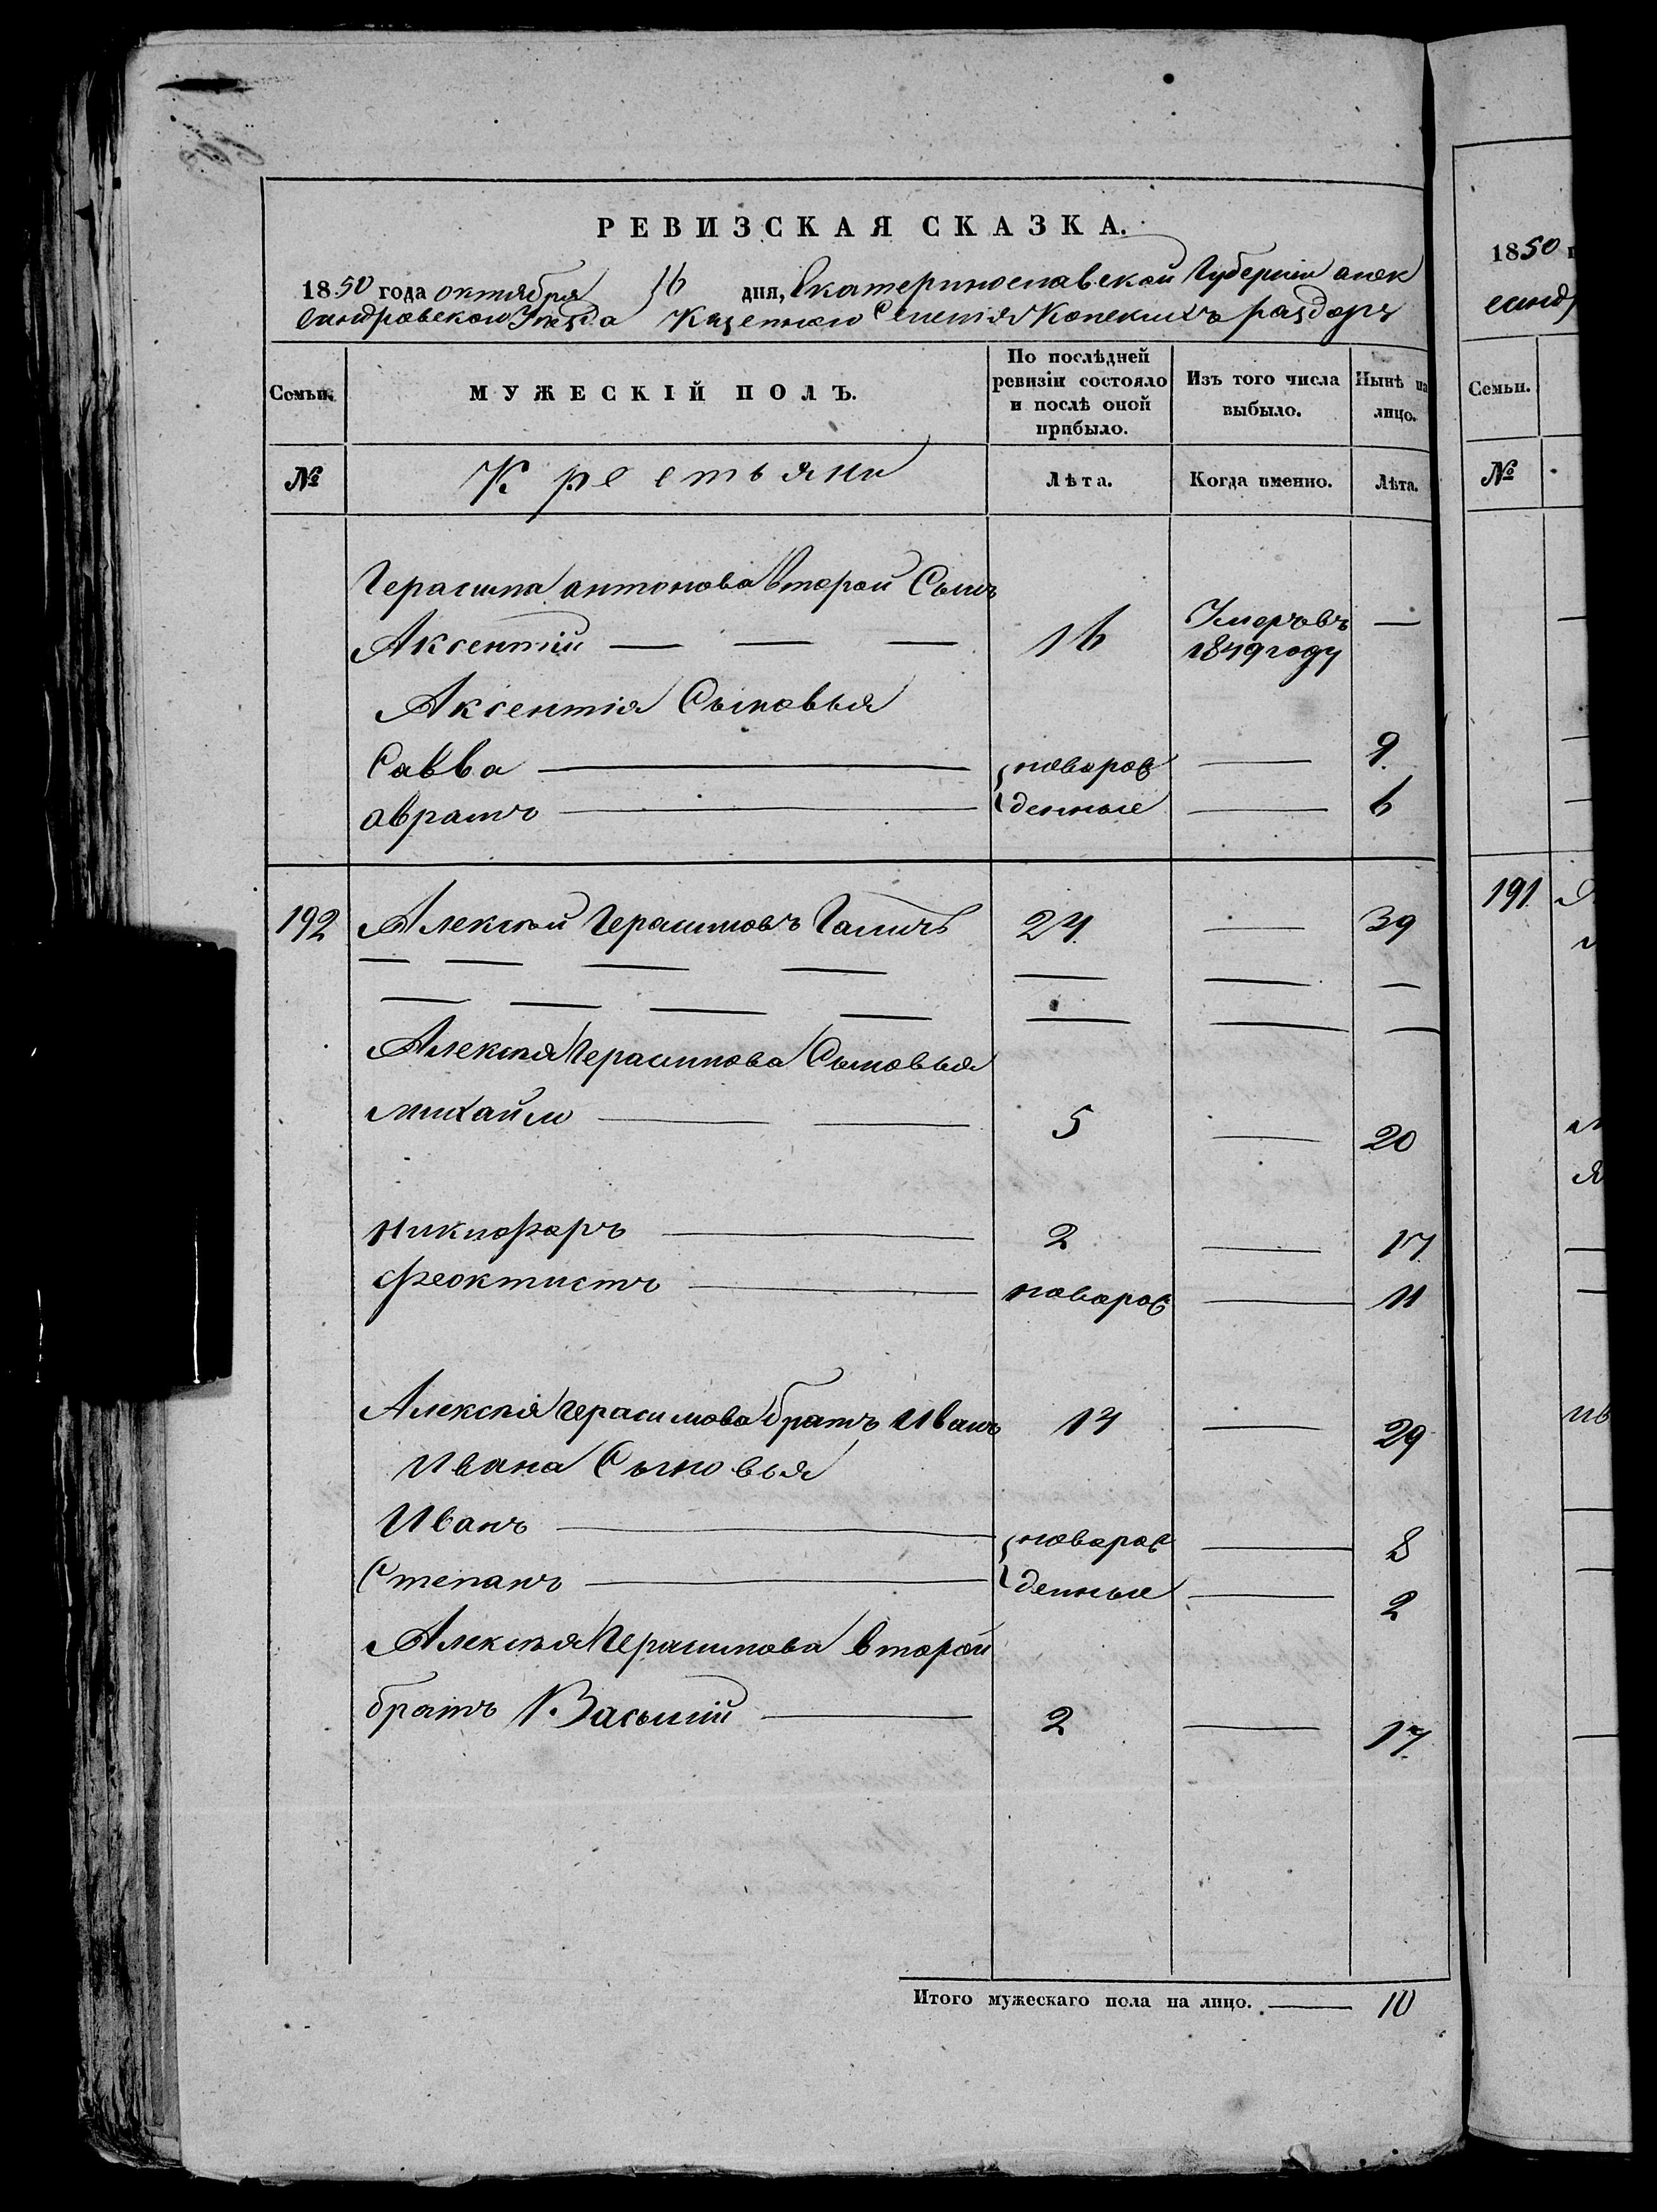 РЕВИЗСКАЯ СКАЗКА.
1850 года октября 16 дня, Екатеринославской Губернии алек
сандровского Уезда Казенного Селения Конских раздор
Семьи. МУЖЕСКІЙ ПОЛЪ. По послѣдней ревизіи состояло и послѣ оной прибыло. Изъ того числа выбыло. Нынѣ на лицо.
№ Крестьяни Лѣта. Когда именно. Лѣта.
Герасима антонова Второй Сынъ
Аксентій — — — 16 Умеръ въ 1849 году —
Аксентія Сыновья
Савва — новорож — 9
аврамъ — денные — 6
192 Алексей Герасимовъ 24 — 39
— — — — — — —
— — — — — — —
Алексея Герасимова Сыновья
михайло — — 5 — 20
никифоръ — 2 — 17
феоктистъ — новорож — 11
Алексея Герасимова братъ Иванъ 14 — 29
Ивана Сыновья
Иванъ — новорож — 8
Степанъ — денные — 2
Алексея Герасимова второй
братъ Василій — 2 — 17
Итого мужескаго пола на лицо. — 10
1850
Семьи.
№
191